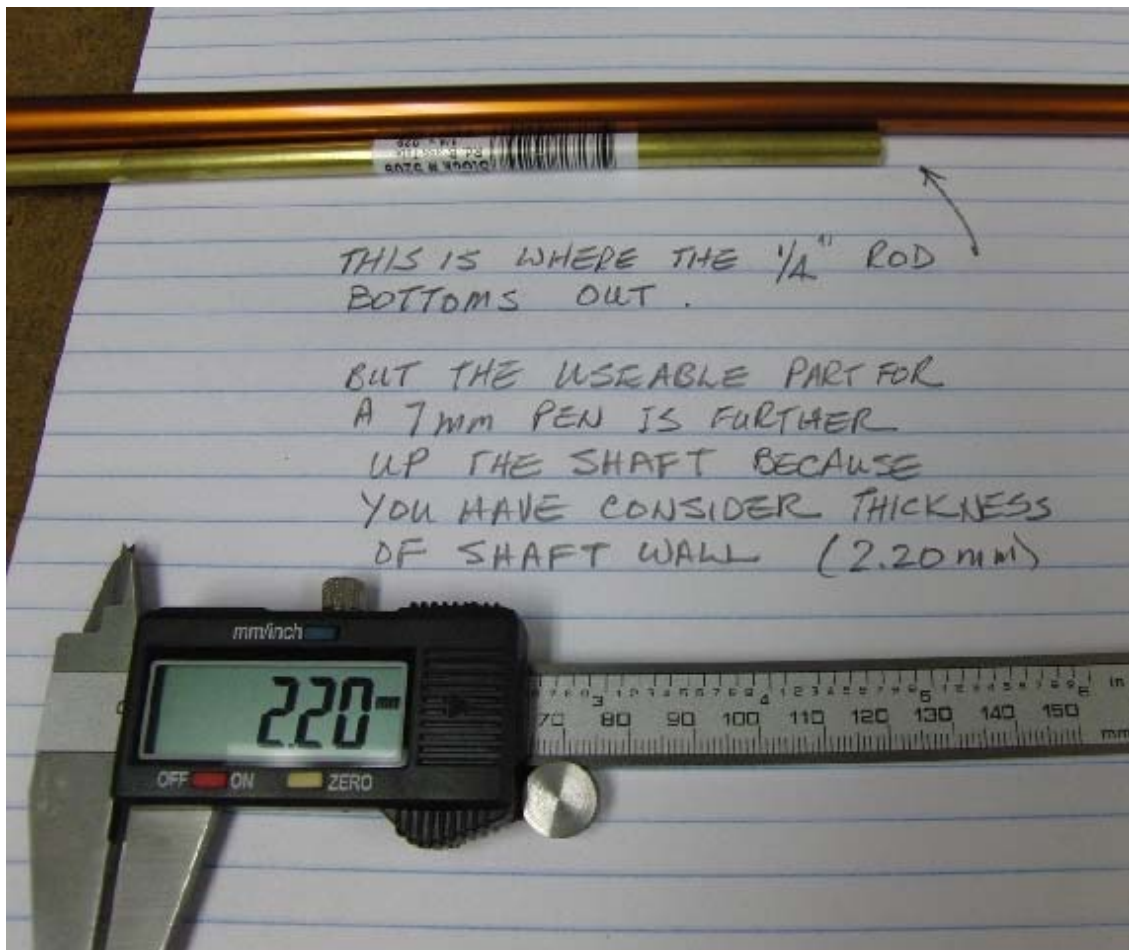 THIS IS WHERE THE 1/4" ROD
BOTTOMS OUT.
BUT THE USEABLE PART FOR
A 7mm PEN IS FURTHER
UP THE SHAFT BECAUSE
YOU HAVE CONSIDER THICKNESS
OF SHAFT WALL (2.20mm)
mm/inch
2.20 mm
OFF ON ZERO
3 4 5 6 in
70 80 90 100 110 120 130 140 150
mm